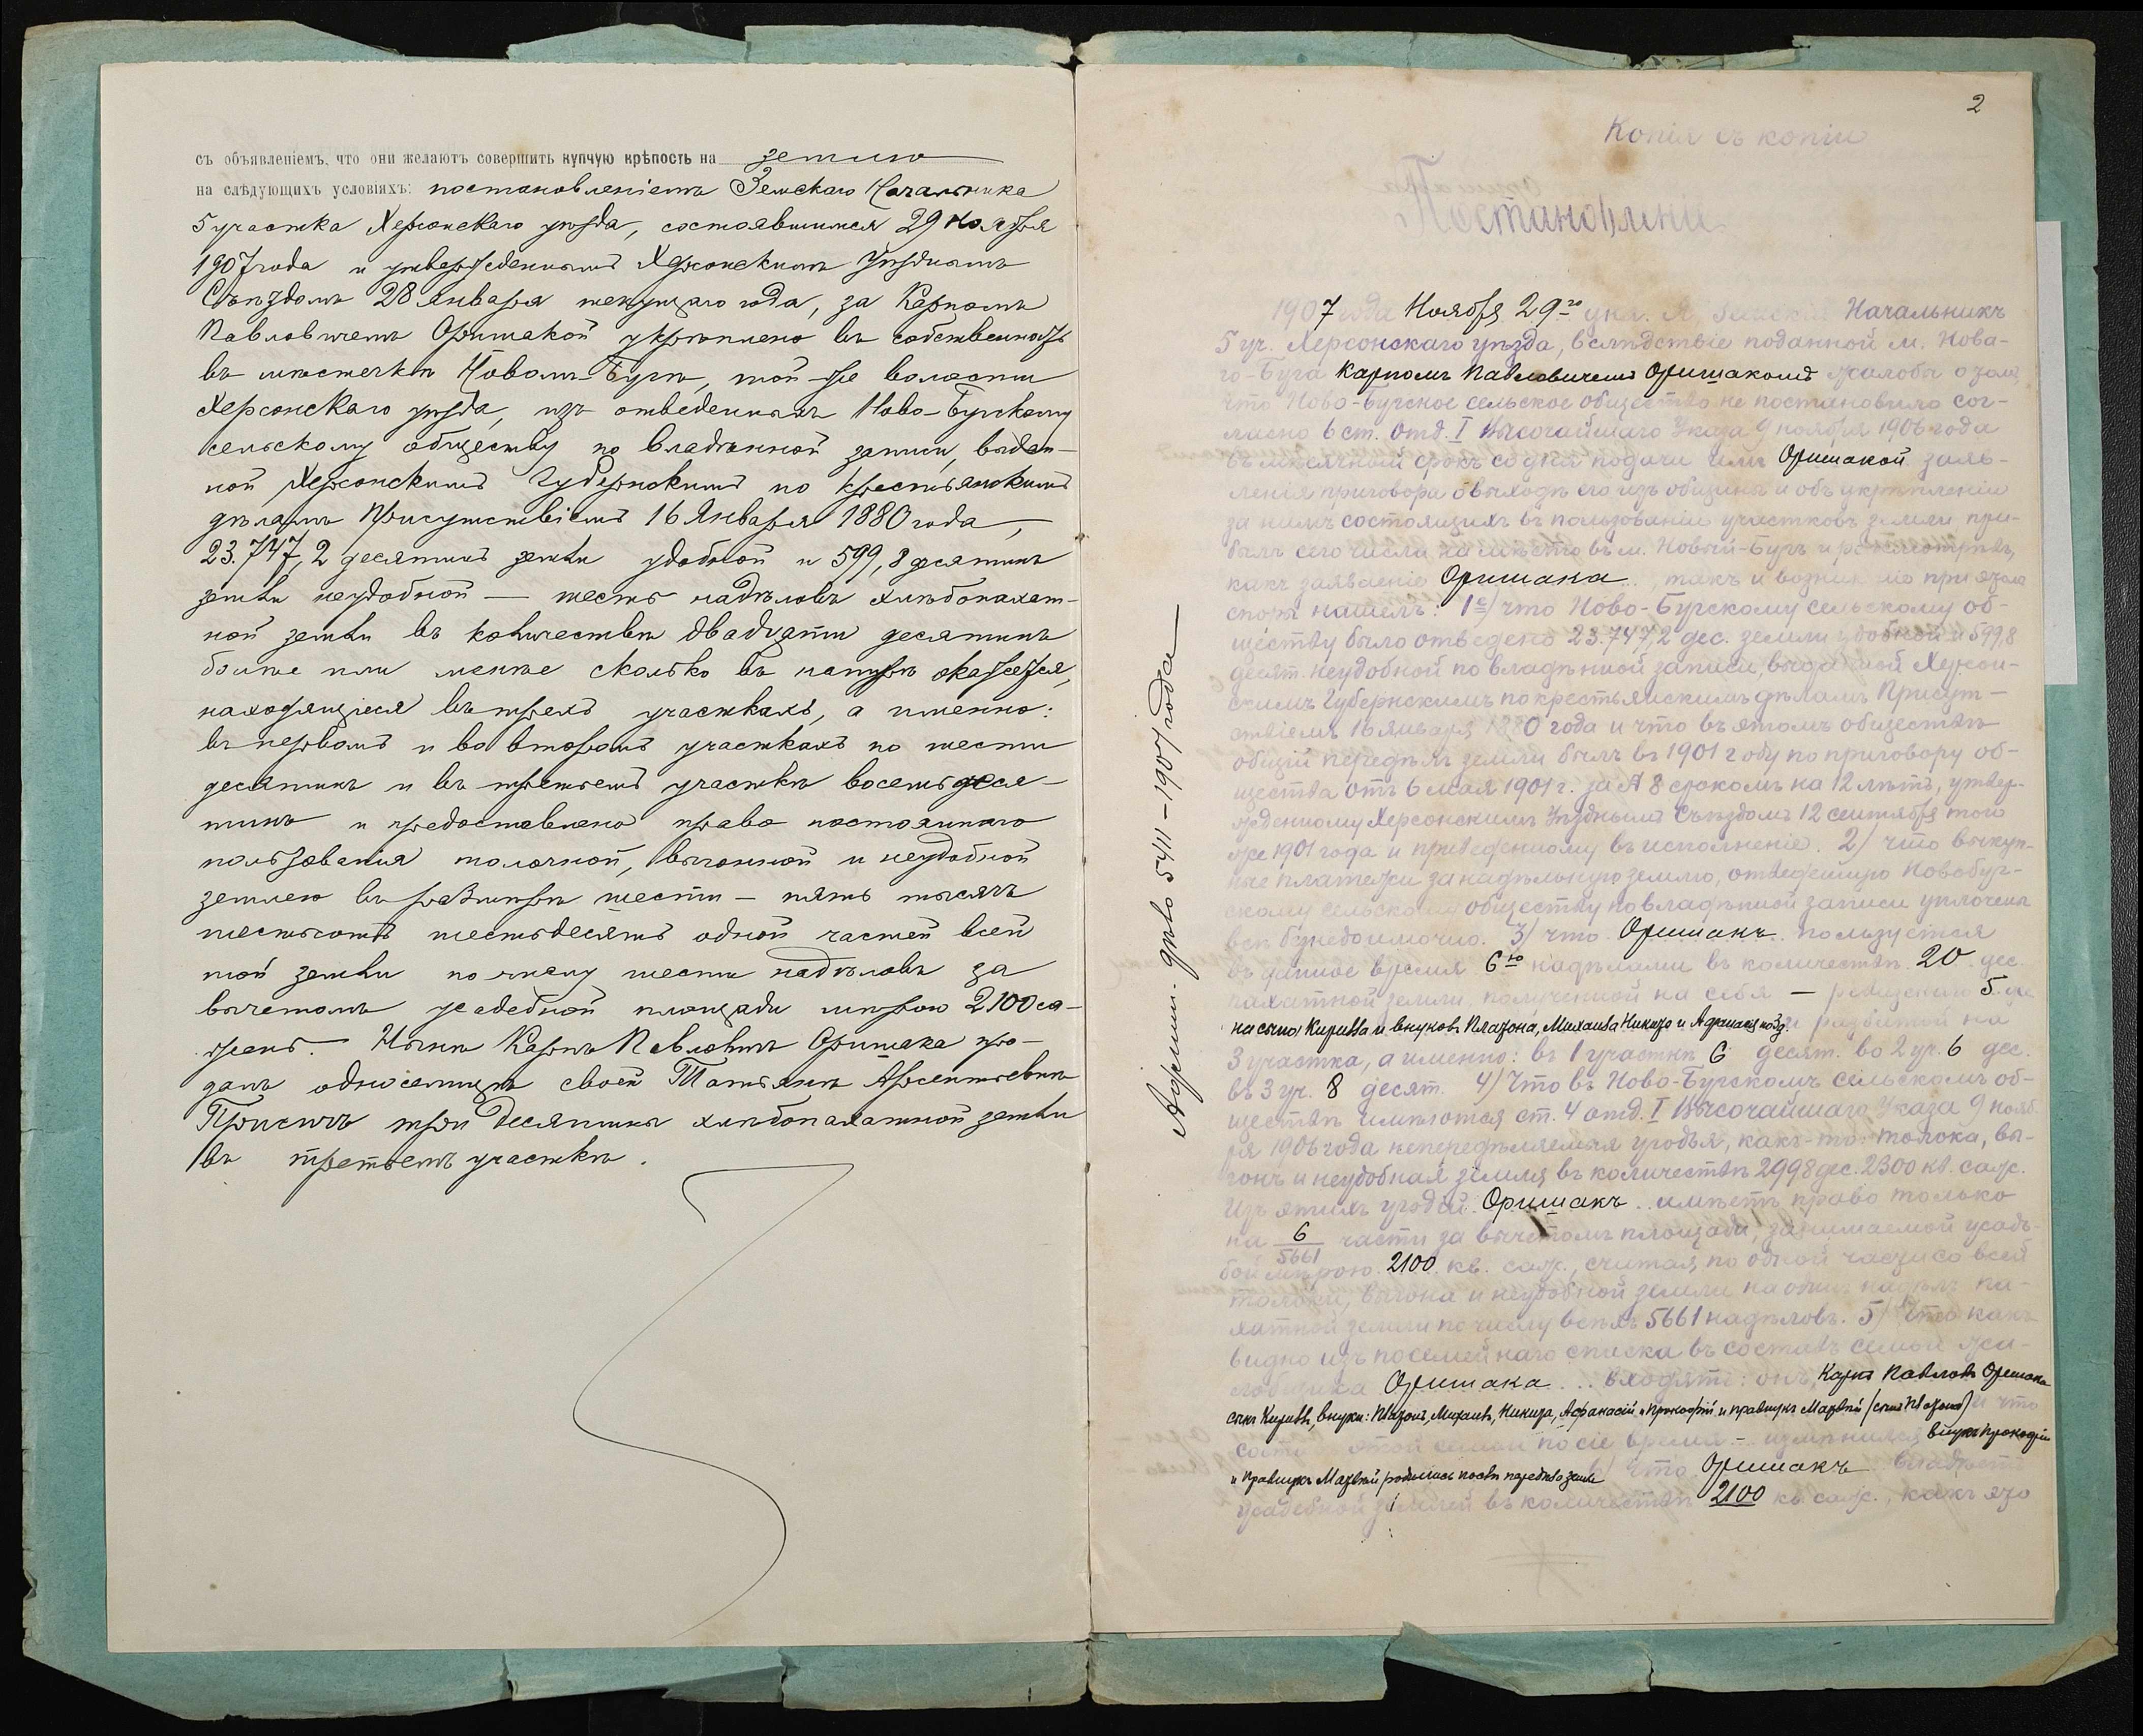 съ объявленіемъ, что они желаютъ совершить купчую крѣпость на землю
на слѣдующихъ условіяхъ: постановленіемъ Земскаго Начальника
5 участка Херсонскаго уѣзда, состоявшимся 29 Ноября
1907 года и утвержденнымъ Херсонскимъ Уѣзднымъ
Съѣздомъ 28 Января текущаго года, за Карпомъ
Павловичемъ Оришакой укрѣплено въ собственность
въ мѣстечкѣ Новомъ-Бугѣ, той-же волости
Херсонскаго уѣзда, изъ отведенныхъ Ново-Бугскому
сельскому обществу по владѣнной записи, выдан-
ной Херсонскимъ Губернскимъ по крестьянскимъ
дѣламъ Присутствіемъ 16 Января 1880 года,
23.747,2 десятинъ земли удобной и 599,8 десятинъ
земли неудобной — шесть надѣловъ хлѣбопахат-
ной земли въ количествѣ двадцати десятинъ
болѣе или менѣе сколько въ натурѣ окажется,
находящіеся въ трехъ участкахъ, а именно:
въ первомъ и во второмъ участкахъ по шести
десятинъ и въ третьемъ участкѣ восемь деся-
тинъ и предоставлено право постояннаго
пользованія толочной, выгонной и неудобной
землею въ размѣрѣ шести — пять тысячъ
шестьсотъ шестьдесятъ одной частей всей
той земли по числу шести надѣловъ за
вычетомъ усадебной площади мѣрою 2100 са-
женъ. Нынѣ Карпъ Павловичъ Оришака про-
далъ односелицѣ своей Татьянѣ Арсентьевнѣ
Присичъ три десятины хлѣбопахатной земли
въ третьемъ участкѣ.
2
Копія съ копіи
Постановленіе
1907 года Ноября 29го дня. Я, Земскій Начальникъ
5 уч. Херсонскаго уѣзда, вслѣдствіе поданной м. Нова-
го-Буга Карпомъ Павловичемъ Оришакомъ жалобы о томъ,
что Ново-Бугское сельское общество не постановило сог-
ласно 6 ст. отд. I Высочайшаго Указа 9 ноября 1906 года
въ мѣсячный срокъ со дня подачи имъ Оришакой заяв-
ленія приговора о выходѣ его изъ общины и объ укрѣпленіи
за нимъ состоящихъ въ пользованіи участковъ земли, при-
былъ сего числа на мѣсто въ м. Новый-Бугъ и разсмотрѣвъ,
какъ заявленіе Оришака, такъ и возник по при этомъ
споръ нашелъ: 1е/ что Ново-Бугскому сельскому об-
ществу было отведено 23.747,2 дес. земли удобной и 599,8
десят. неудобной по владѣнной записи, выданной Херсон-
скимъ Губернскимъ по крестьянскимъ дѣламъ Присут-
ствіемъ 16 января 1880 года и что въ этомъ обществѣ
общій передѣлъ земли былъ въ 1901 году по приговору об-
щества отъ 6 мая 1901 г. за № 8 срокомъ на 12 лѣтъ, утвер-
жденному Херсонскимъ Уѣзднымъ Съѣздомъ 12 сентября того
же 1901 года и приведенному въ исполненіе. 2/ что выкуп-
ные платежи за надѣльную землю, отведенную Новобуг-
скому сельскому обществу по владѣнной записи уплочены
всѣ безнедоимочно. 3/ что Оришакъ пользуется
въ данное время 6ю надѣлами въ количествѣ 20 дес.
пахатной земли, полученной на себя —
на сына Кирилла и внуковъ Платона, Михаила Никиту и Афанасія разбитой на
3 участка, а именно: въ 1 участкѣ 6 десят. во 2 уч. 6 дес.
въ 3 уч. 8 десят. 4/ Что въ Ново-Бугскомъ сельскомъ об-
ществѣ имѣются ст. 4 отд. I Высочайшаго Указа 9 нояб-
ря 1906 года непередѣляемыя угодья, какъ-то: толока, вы-
гонъ и неудобная земля въ количествѣ 2998 дес. 2300 кв. саж.
Изъ этихъ угодій Оришакъ имѣетъ право только
на 6/5661 части за вычетомъ площади, занимаемой усадь-
бой мѣрою 2100 кв. саж., считая по одной части со всей
толоки, выгона и неудобной земли на одинъ надѣлъ па-
хатной земли по числу всѣхъ 5661 надѣловъ. 5/ Что какъ
видно изъ посемейнаго списка въ составъ семьи жа-
лобщика Оришака входятъ: онъ, Карпъ Павловъ Оришака
сынъ Кириллъ, внуки: Платонъ, Михаилъ, Никита, Афанасій и Прокофій и правнукъ Матвѣй (сынъ Платона) и что
этой семьи по сіе время измѣнился, внукъ Прокофій
и правнукъ Матвѣй родились послѣ передѣла земли что Оришакъ владѣетъ
усадебной землей въ количествѣ 2100 кв. саж., какъ это
дѣло 5411–1907 года